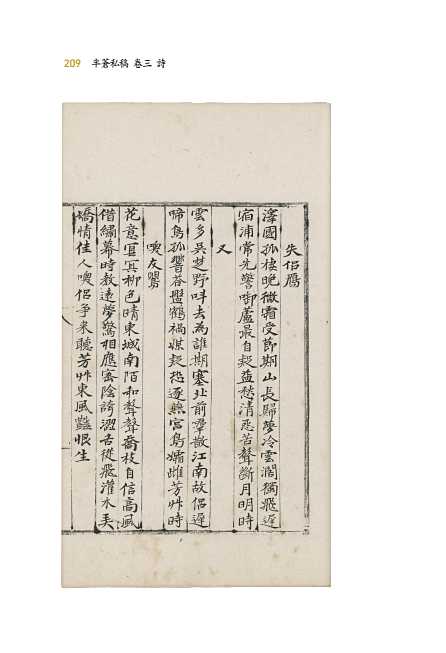 209 半蒼私稿 卷三 詩
失侶鴈
澤國孤棲晚微霜受節期山長歸夢冷雲濶獨飛遲
宿浦常先警啣蘆最自疑益愁清怨苦聲斷月明時
又
雲多吳楚野呌去為誰期塞北前羣散江南故侶遲
啼鳥孤響答盟鶴禍媒疑恐逐無宮鳥孀雌芳艸時
喚友鸎
花意冥冥柳色晴東城南陌和聲聲喬枝自信高風
借繡幕時教遠夢驚相應密陰誇澀舌從飛灌木美
嬌情佳人喚侶爭来聽芳艸東風豔恨生